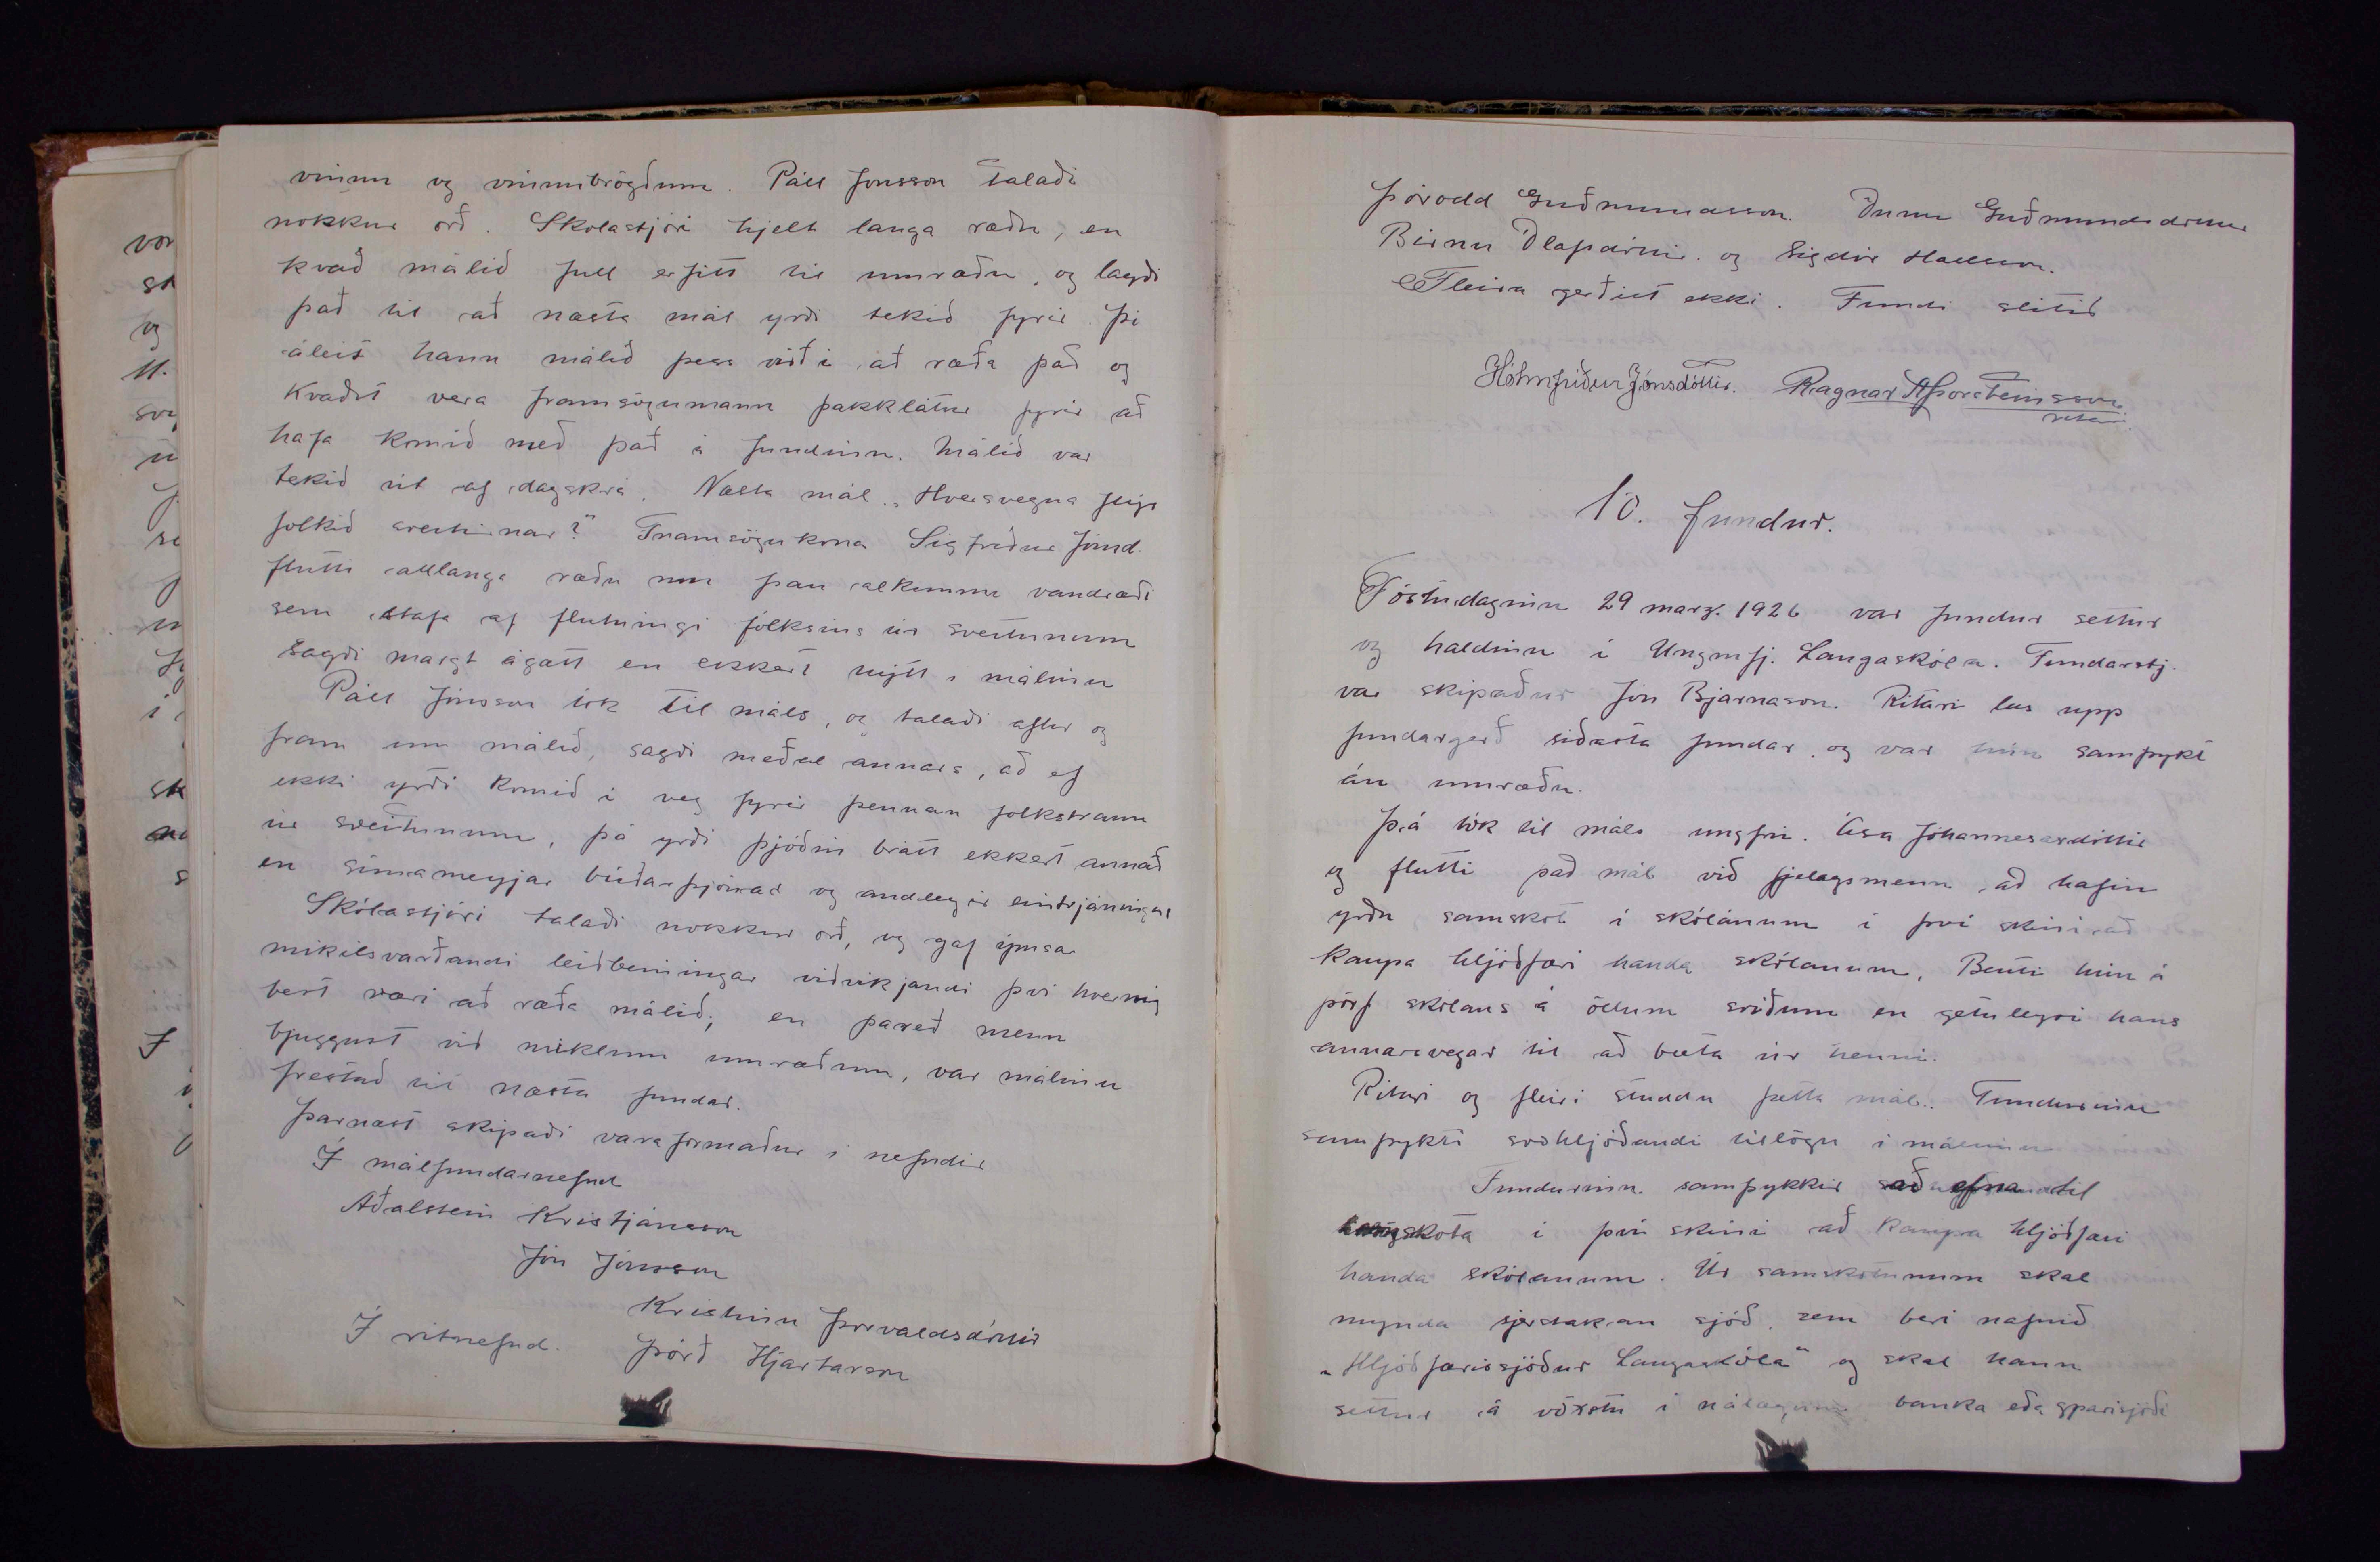 vinnu og vinnubrögðum. Páll Jónsson talaði
nokkur orð. Skólastjóri hjelt langa ræðu, en
kvað málið full erfitt til umræðu, og lagði
það til að næsta mál yrði tekið fyrir. Þó
áleit hann málið þess virði að ræða það og
kvaðst vera framsögumann þakklátur fyrir að
hafa komið með það á fundinn. Málið var
tekið út af dagskrá. Næsta mál. „Hversvegna flýr
fólkið sveitirnar?" Framsögukona Sigfríður Jónsd.
flutti allanga ræðu um þau alkunnu vandræði
sem stafa af flutningi fólksins úr sveitunum
Sagði margt ágætt en ekkert nýtt í málinu
Páll Jónsson tók til máls, og talaði aftur og
fram um málið, sagði meðal annars, að ef
ekki yrði komið í veg fyrir þennan fólkstraum
úr sveitunum, þá yrði þjóðin brátt ekkert annað
en símameyjar búðarþjónar og andlegir eintrjáningar
Skólastjóri talaði nokkur orð, og gaf ýmsar
mikilsvarðandi leiðbeiningar viðvíkjandi því hvernig
best væri að ræða málið; en þareð menn
bjuggust við miklum umræðum, var málinu
frestað til næsta fundar.
Þarnæst skipaði varaformaður í nefndir
Í málfundarnefnd
Aðalstein Kristjánsson
Jón Jónsson
Kristínu Þorvaldsdóttir
Í ritnefnd. Þórð Hjartarson
Þórodd Guðmundsson. Unni Guðmundsdóttur
Birnu Ólafsdóttir. og Sigdór Hallsson.
Fleira gerðist ekki. Fundi slitið
Hólmfríður Jónsdóttir. Ragnar A Þorsteinsson
ritari.
10. fundur.
Föstudaginn 29 marz. 1926 var fundur settur
og haldinn í Ungmfj. Laugaskóla. Fundarstj.
var skipaður Jón Bjarnason. Ritari las upp
fundargerð síðasta fundar, og var hún samþykt
án umræðu.
Þá tók til máls ungfrú. Ása Jóhannesardóttir
og flutti það mál við fjelagsmenn, að hafin
yrðu samskot í skólanum í því skini að
kaupa hljóðfæri handa skólanum. Benti hún á
þörf skólans á öllum sviðum en getuleysi hans
annarsvegar til að bæta úr henni.
Ritari og fleiri studdu þetta mál. Fundurinn
samþykti svohljóðandi tillögu í málinu
Fundurinn samþykkir að efna til
samskota í því skini að kaupa hljóðfæri
handa skólanum. Úr samskotunum skal
mynda sjerstakan sjóð, sem beri nafnið
„Hljóðfærissjóður Laugaskóla" og skal hann
settur á vöxtu í nálægum banka eða sparisjóði